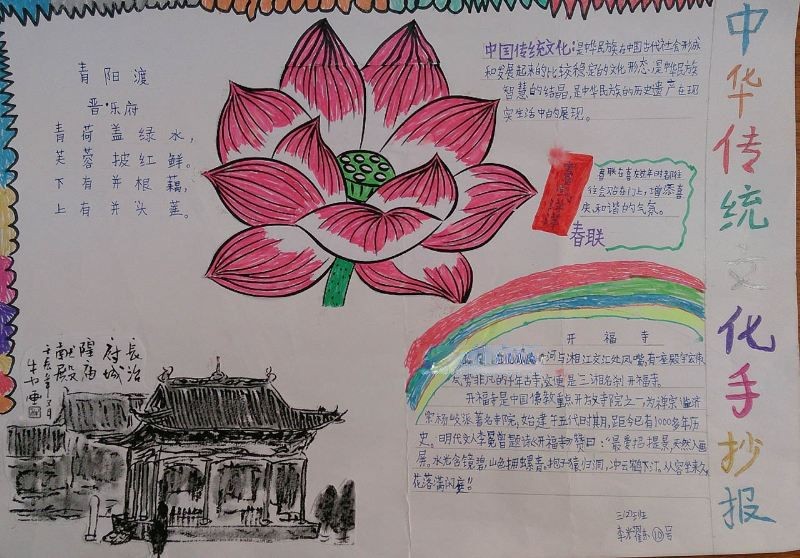 中华传统文化手抄报
青阳渡
晋·乐府
青荷盖绿水，
芙蓉披红鲜。
下有并根藕，
上有并头莲。
中国传统文化：是中华民族在中国古代社会形成
和发展起来的比较稳定的文化形态，是中华民族
智慧的结晶，是中华民族的历史遗产在现
实生活中的展现。
春联在喜
往会贴在门上，增添喜
庆、和谐的气氛。
春联
开福寺
河与湘江交汇处凤嘴，有一座殿宇宏
势非凡的千年古寺，这便是"三湘名刹"开福寺。
开福寺是中国佛教重点开放寺院之一，为禅宗临济
宗杨岐派著名寺院，始建于五代时期，距今已有1000多年历
史。明代文人李冕曾题诗《开福寺》赞曰："最爱招提景，天然入画
屏。水光含镜碧，山色拥螺青。抱子猿归洞，冲云鹤下汀。从容坐来久，
花落满闲庭"!
长治
府城
隍庙
献殿
三
号